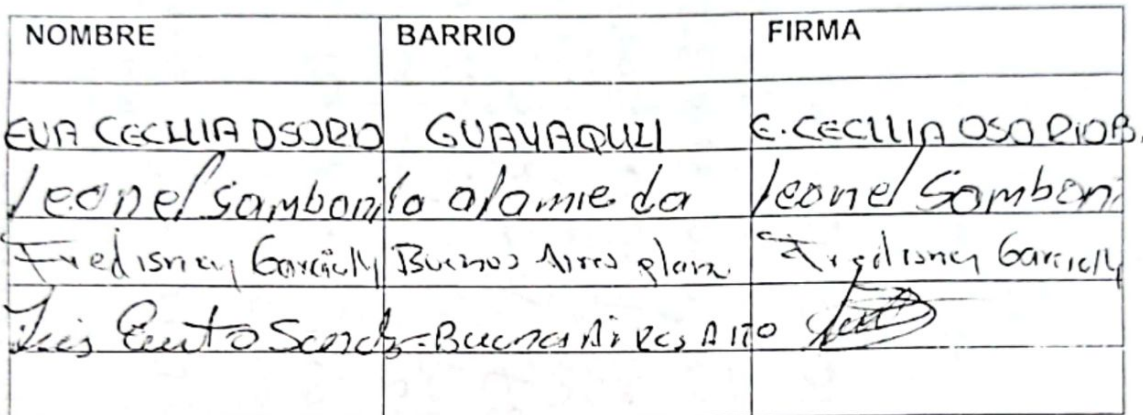 NOMBRE BARRIO FIRMA
EVA CECILIA OSORIO GUAYAQUIL E. CECILIA OSORIO B.
leonel Samboni la alameda leonel Samboni
Fredisney Buenos Aires plana Fredisney
Luis Buenos Aires Alto